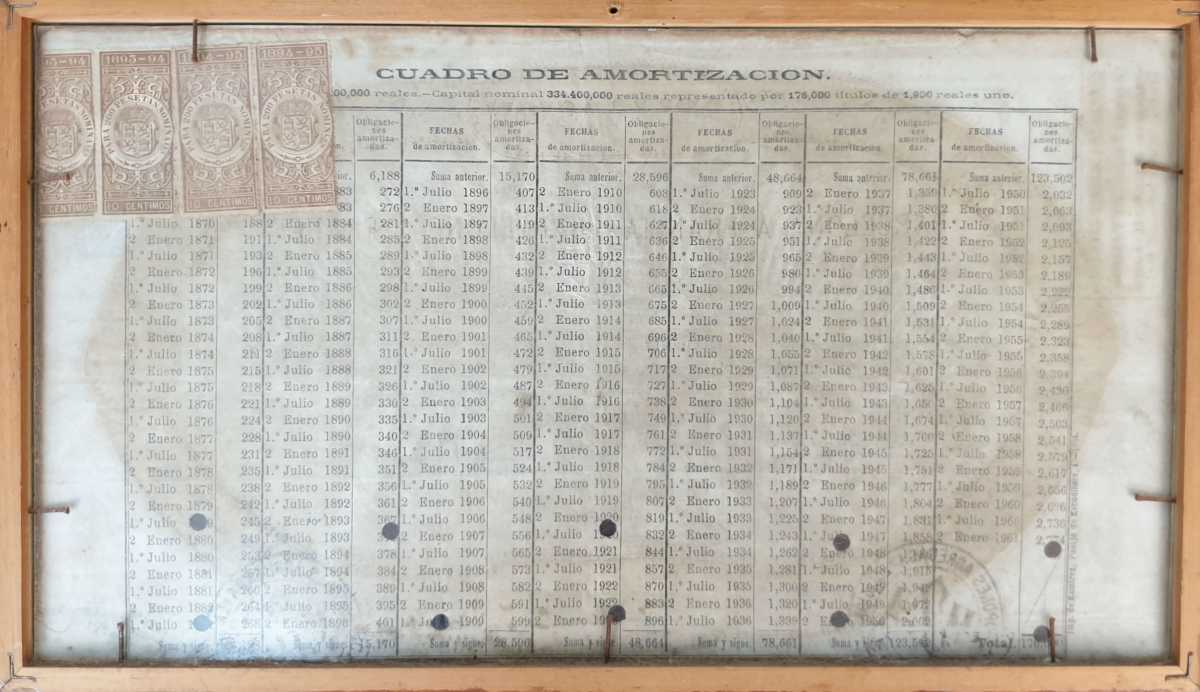 CUADRO DE AMORTIZACION.
00,000 reales.—Capital nominal 334.400,000 reales representado por 176,000 títulos de 1,900 reales uno.
1893-94 1894-95 1894-95
PARA 250 PESETAS NOMINALES
10 CENTIMOS 10 CENTIMOS 10 CENTIMOS
Obligaciones amortizadas. FECHAS de amortizacion. Obligaciones amortizadas. FECHAS de amortizacion. Obligaciones amortizadas. FECHAS de amortizacion. Obligaciones amortizadas. FECHAS de amortizacion. Obligaciones amortizadas. FECHAS de amortizacion. Obligaciones amortizadas.
6,188 Suma anterior. 15,170 Suma anterior. 28,596 Suma anterior. 48,664 Suma anterior. 78,661 Suma anterior. 123,502
883 272 1.º Julio 1896 407 2 Enero 1910 608 1.º Julio 1923 909 2 Enero 1937 1,359 1.º Julio 1950 2,032
883 276 2 Enero 1897 413 1.º Julio 1910 618 2 Enero 1924 923 1.º Julio 1937 1,380 2 Enero 1951 2,063
1.º Julio 1870 188 2 Enero 1884 281 1.º Julio 1897 419 2 Enero 1911 627 1.º Julio 1924 937 2 Enero 1938 1,401 1.º Julio 1951 2,093
2 Enero 1871 191 1.º Julio 1884 285 2 Enero 1898 426 1.º Julio 1911 636 2 Enero 1925 951 1.º Julio 1938 1,422 2 Enero 1952 2,125
1.º Julio 1871 193 2 Enero 1885 289 1.º Julio 1898 432 2 Enero 1912 646 1.º Julio 1925 965 2 Enero 1939 1,443 1.º Julio 1952 2,157
2 Enero 1872 196 1.º Julio 1885 293 2 Enero 1899 439 1.º Julio 1912 655 2 Enero 1926 980 1.º Julio 1939 1,464 2 Enero 1953 2,189
1.º Julio 1872 199 2 Enero 1886 298 1.º Julio 1899 445 2 Enero 1913 665 1.º Julio 1926 994 2 Enero 1940 1,486 1.º Julio 1953
2 Enero 1873 202 1.º Julio 1886 302 2 Enero 1900 452 1.º Julio 1913 675 2 Enero 1927 1,009 1.º Julio 1940 1,509 2 Enero 1954 2,255
1.º Julio 1873 205 2 Enero 1887 307 1.º Julio 1900 459 2 Enero 1914 685 1.º Julio 1927 1,024 2 Enero 1941 1,531 1.º Julio 1954 2,289
2 Enero 1874 208 1.º Julio 1887 311 2 Enero 1901 465 1.º Julio 1914 696 2 Enero 1928 1,040 1.º Julio 1941 1,554 2 Enero 1955 2,323
1.º Julio 1874 211 2 Enero 1888 316 1.º Julio 1901 472 2 Enero 1915 706 1.º Julio 1928 1,055 2 Enero 1942 1,578 1.º Julio 1955 2,358
2 Enero 1875 215 1.º Julio 1888 321 2 Enero 1902 479 1.º Julio 1915 717 2 Enero 1929 1,071 1.º Julio 1942 1,601 2 Enero 1956 2,394
1.º Julio 1875 218 2 Enero 1889 326 1.º Julio 1902 487 2 Enero 1916 727 1.º Julio 1929 1,087 2 Enero 1943 1,625 1.º Julio 1956 2,430
2 Enero 1876 221 1.º Julio 1889 330 2 Enero 1903 494 1.º Julio 1916 738 2 Enero 1930 1,104 1.º Julio 1943 1,650 2 Enero 1957 2,466
1.º Julio 1876 224 2 Enero 1890 335 1.º Julio 1903 501 2 Enero 1917 749 1.º Julio 1930 1,120 2 Enero 1944 1,674 1.º Julio 1957 2,503
2 Enero 1877 228 1.º Julio 1890 340 2 Enero 1904 509 1.º Julio 1917 761 2 Enero 1931 1,137 1.º Julio 1944 1,700 2 Enero 1958 2,541
1.º Julio 1877 231 2 Enero 1891 346 1.º Julio 1904 517 2 Enero 1918 772 1.º Julio 1931 1,154 2 Enero 1945 1,725 1.º Julio 1958 2,579
2 Enero 1878 235 1.º Julio 1891 351 2 Enero 1905 524 1.º Julio 1918 784 2 Enero 1932 1,171 1.º Julio 1945 1,751 2 Enero 1959 2,617
1.º Julio 1878 238 2 Enero 1892 356 1.º Julio 1905 532 2 Enero 1919 795 1.º Julio 1932 1,189 2 Enero 1946 1,777 1.º Julio 1959 2,656
2 Enero 1879 242 1.º Julio 1892 361 2 Enero 1906 540 1.º Julio 1919 807 2 Enero 1933 1,207 1.º Julio 1946 1,804 2 Enero 1960 2,696
1.º Julio 245 2 Enero 1893 367 1.º Julio 1906 548 2 Enero 1920 819 1.º Julio 1933 1,225 2 Enero 1947 1,831 1.º Julio 1960 2,736
2 Enero 1880 249 1.º Julio 1893 2 Enero 1907 556 1.º Julio 832 2 Enero 1934 1,243 1.º Julio 1947 1,858 2 Enero 1961
1.º Julio 1880 253 2 Enero 1894 378 1.º Julio 1907 565 2 Enero 1921 844 1.º Julio 1934 1,262 2 Enero 1948
2 Enero 1881 257 1.º Julio 1894 384 2 Enero 1908 573 1.º Julio 1921 857 2 Enero 1935 1,281 1.º Julio 1948 1,915
1.º Julio 1881 260 2 Enero 1895 389 1.º Julio 1908 582 2 Enero 1922 870 1.º Julio 1935 1,300 2 Enero 1949
2 Enero 1882 264 1.º Julio 1895 395 2 Enero 1909 591 1.º Julio 1922 883 2 Enero 1936 1,320 1.º Julio 1949
1.º Julio 268 2 Enero 1896 401 1.º Julio 1909 599 2 Enero 896 1.º Julio 1936 1,339 2 Enero
Suma y sigue. 15,170 Suma y sigue. 28,596 Suma y sigue. 48,664 Suma y sigue. 78,661 Suma y sigue. Total.